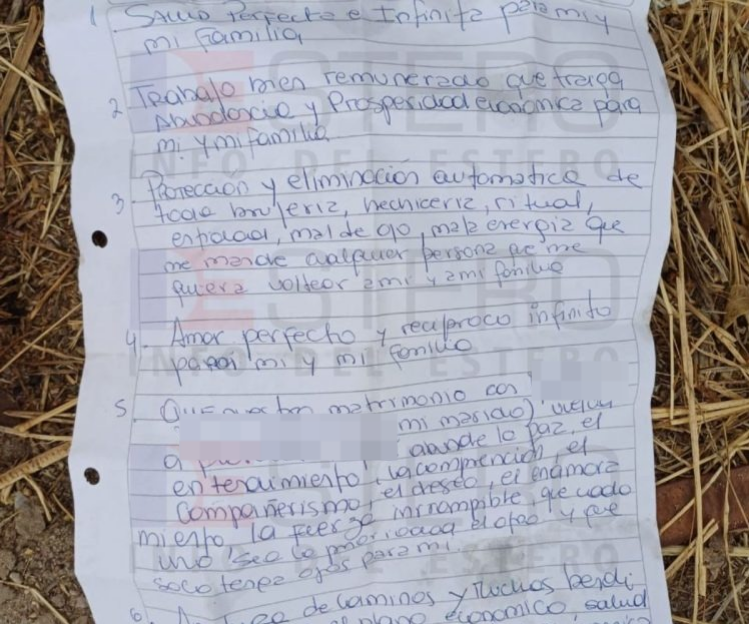 1 Salud Perfecta e Infinita para mi y
mi Familia
2 Trabajo bien remunerado que traiga
Abundancia y Prosperidad económica para
mi y mi familia
3 Protección y eliminación automatica de
toda brujeria, hechiceria, ritual,
entidad, mal de ojo, mala energia que
me mande cualquier persona que me
quiera voltear a mi y a mi familia
4. Amor perfecto y reciproco infinito
para mi y mi familia
5. Que matrimonio con
mi marido)
a abunde la paz, el
entendimiento, la comprencion, el
compañerismo, el deseo, el enamora
miento, la fuerza inrrompible, que cada
uno sea la prioridad del otro y que
solo tenga ojos para mi.
6. de Caminos y Muchas bendi
plano económico, salud
ESTERO
INFO DEL ESTERO
ESTERO
INFO DEL ESTERO
ESTERO
DEL ESTERO